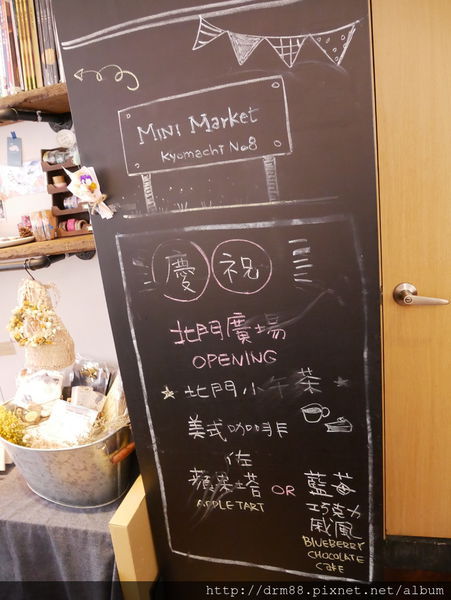 MINI Market
Kyomachi No.8
慶祝
北門廣場
OPENING
☆北門小午茶☆
美式咖啡
佐
蘋果塔 OR 藍莓
APPLE TART
巧克力
戚風
BLUEBERRY
CHOCOLATE
CAFE
http://drm88.pixnet.net/album